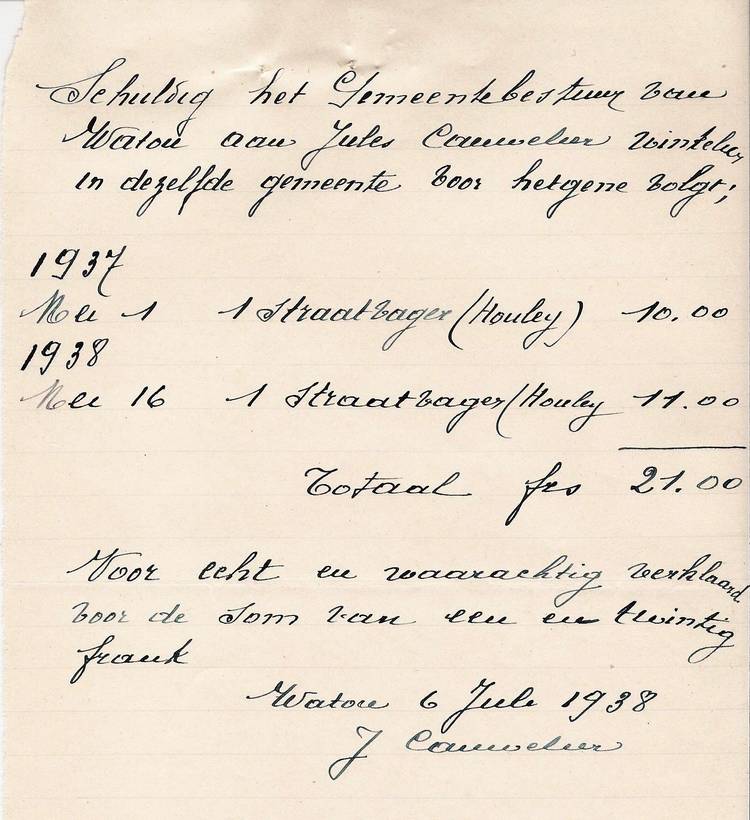 Schuldig het Gemeentebestuur van
Watou aan Jules Cauwelier winkelier
in dezelfde gemeente voor hetgene volgt;
1937
Mei 1 1 Straatvager (Houley) 10.00
1938
Mei 16 1 Straatvager (Houley 11.00
Totaal frs 21.00
Voor echt en waarachtig verklaard
voor de som van een en twintig
frank
Watou 6 Juli 1938
J Cauwelier